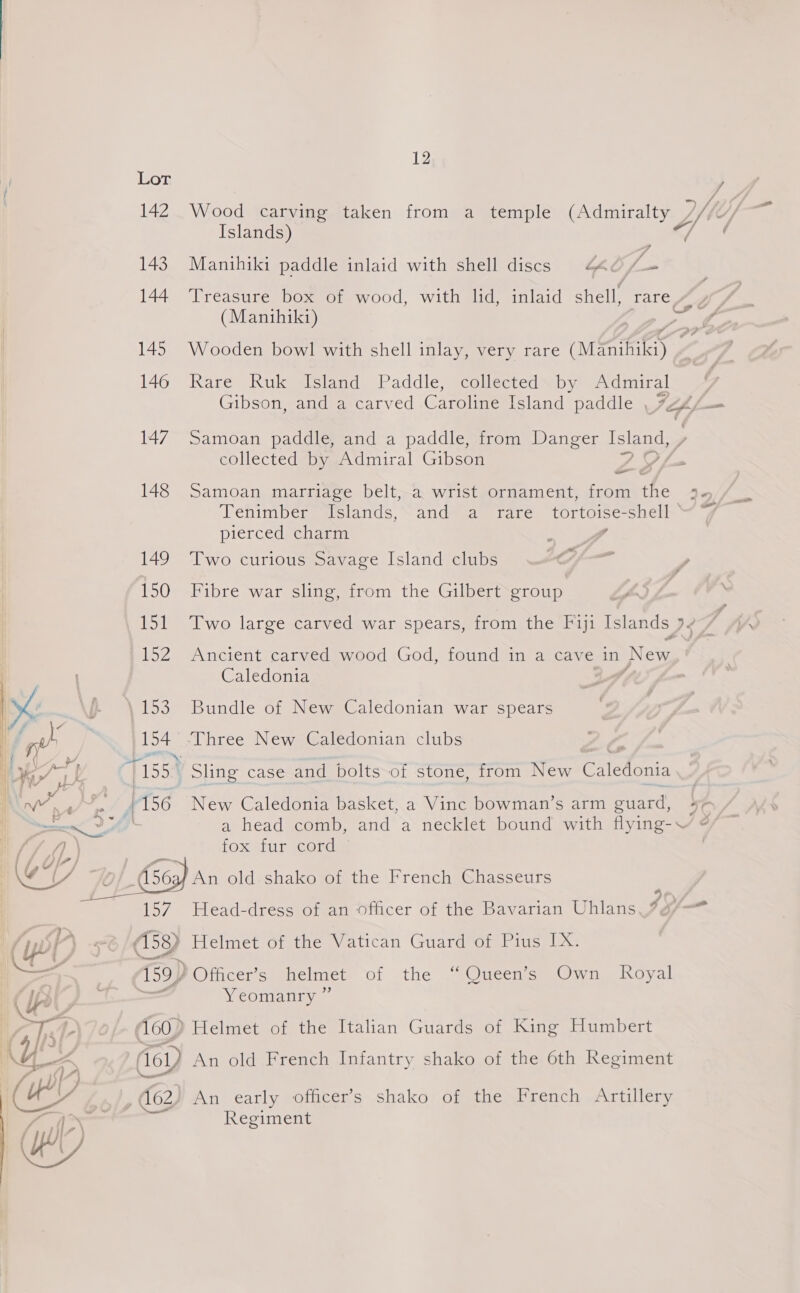 12
Lot
142 Wood carving taken from a temple (Admiralty
Islands)
143 Manihiki paddle inlaid with shell discs
144 Treasure box of wood, with lid, inlaid shell, rare
(Manihiki)
145 Wooden bowl with shell inlay, very rare (Manihiki)
146 Rare Ruk Island Paddle, collected by Admiral
Gibson, and a carved Caroline Island paddle
147 Samoan paddle, and a paddle, from Danger Island,
collected by Admiral Gibson
148 Samoan marriage belt, a wrist ornament, from the
Tenimber Islands, and a rare tortoise-shell
pierced charm
149 Two curious Savage Island clubs
150 Fibre war sling, from the Gilbert group
151 Two large carved war spears, from the Fiji Islands
152 Ancient carved wood God, found in a cave in New
Caledonia
153 Bundle of New Caledonian war spears
154 Three New Caledonian clubs
155 Sling case and bolts of stone, from New Caledonia
156 New Caledonia basket, a Vinc bowman's arm guard,
a head comb, and a necklet bound with flying-
fox fur cord
156a An old shako of the French Chasseurs
157 Head-dress of an officer of the Bavarian Uhlans
158 Helmet of the Vatican Guard of Pius IX.
159 Officer's helmet of the "Queen's Own Royal
Yeomanry"
160 Helmet of the Italian Guards of King Humbert
161 An old French Infantry shako of the 6th Regiment
162 An early officer's shako of the French Artillery
Regiment